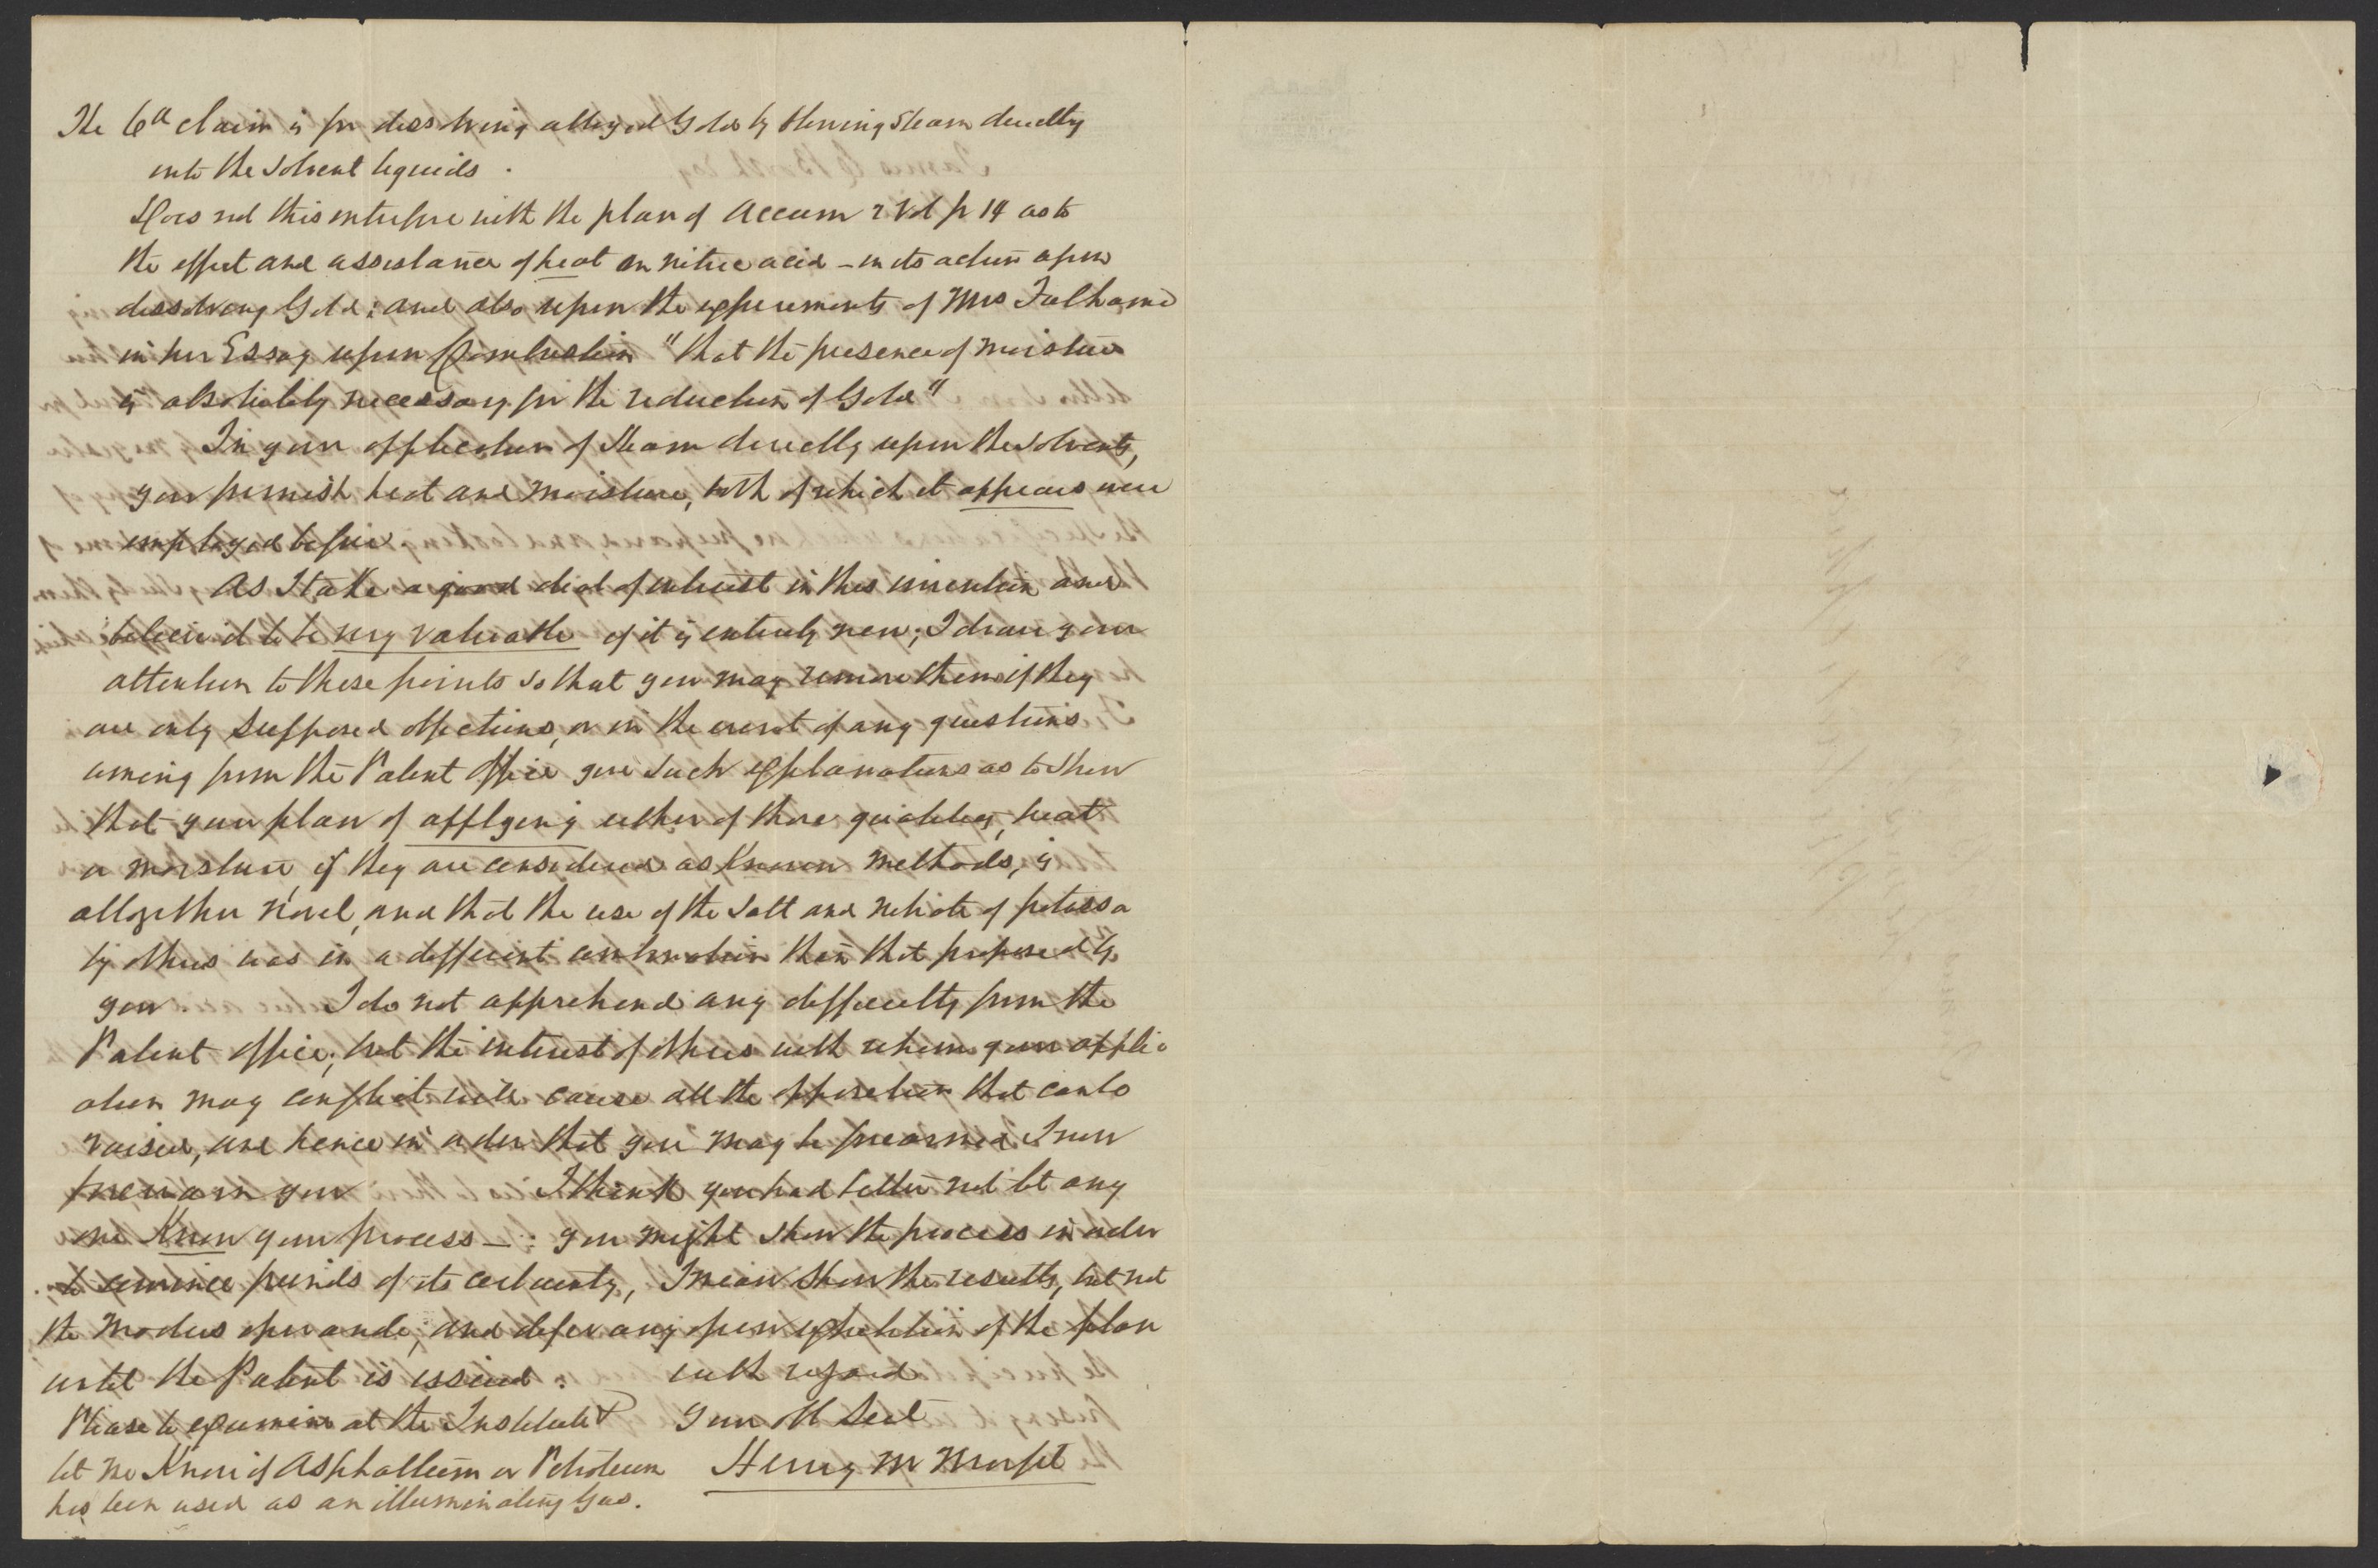 The 6th claim is for dissolving alloyed Gold by blowing Steam directly
into the solvent liquids.
Does not this interfere with the plan of Accum 2 Vol p 14 as to
the effect and assistance of heat on nitric acid – in its action upon
dissolving Gold; and also upon the experiments of Mrs Fulhame
in her Essay upon Combustion "that the presence of moisture
is absolutely necessary for the reduction of Gold"
In your application of steam directly upon the solvents,
you furnish heat and moisture, both of which it appears were
employed before
As I take a good deal of interest in this invention and
believe it to be very valuable if it is entirely new; I draw your
attention to these points so that you may remove them if they
are only supposed objections, or in the event of any questions
arising from the Patent Office give such explanations as to show
that your plan of applying either of those qualities, heat
or moisture, if they are considered as known methods, is
altogether novel, and that the use of the salt and nitrate of potassa
by others was in a different combination than that proposed by
you I do not apprehend any difficulty from the
Patent office; but the interest of others with whom your applic
ation may conflict will cause all the opposition that can be
raised, and hence in order that you may be forearmed I now
forewarn you I think you had better not let any
one Know your process – : you might show the process in order
to convince friends of its certainty, I mean show the results, but not
the modus operandi; and defer any open exhibition of the plan
until the Patent is issued. with regard
Please to examine at the Institute & Your Ob Sevt
let me Know if Asphaltum or Petroleum Henry M Morfit
has been used as an illuminating Gas.